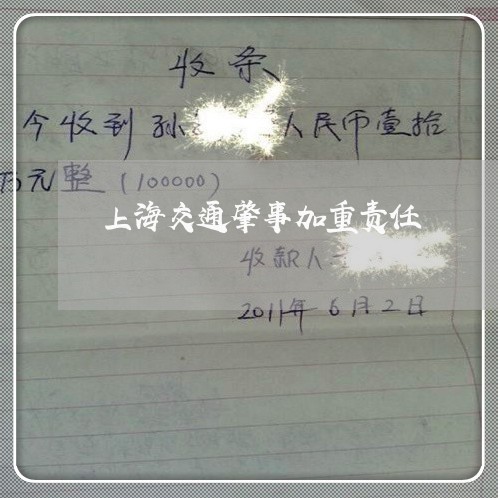 收条
今收到孙 人民币壹拾
万元整(100000)
上海交通肇事加重责任
收款人
2011年6月2日